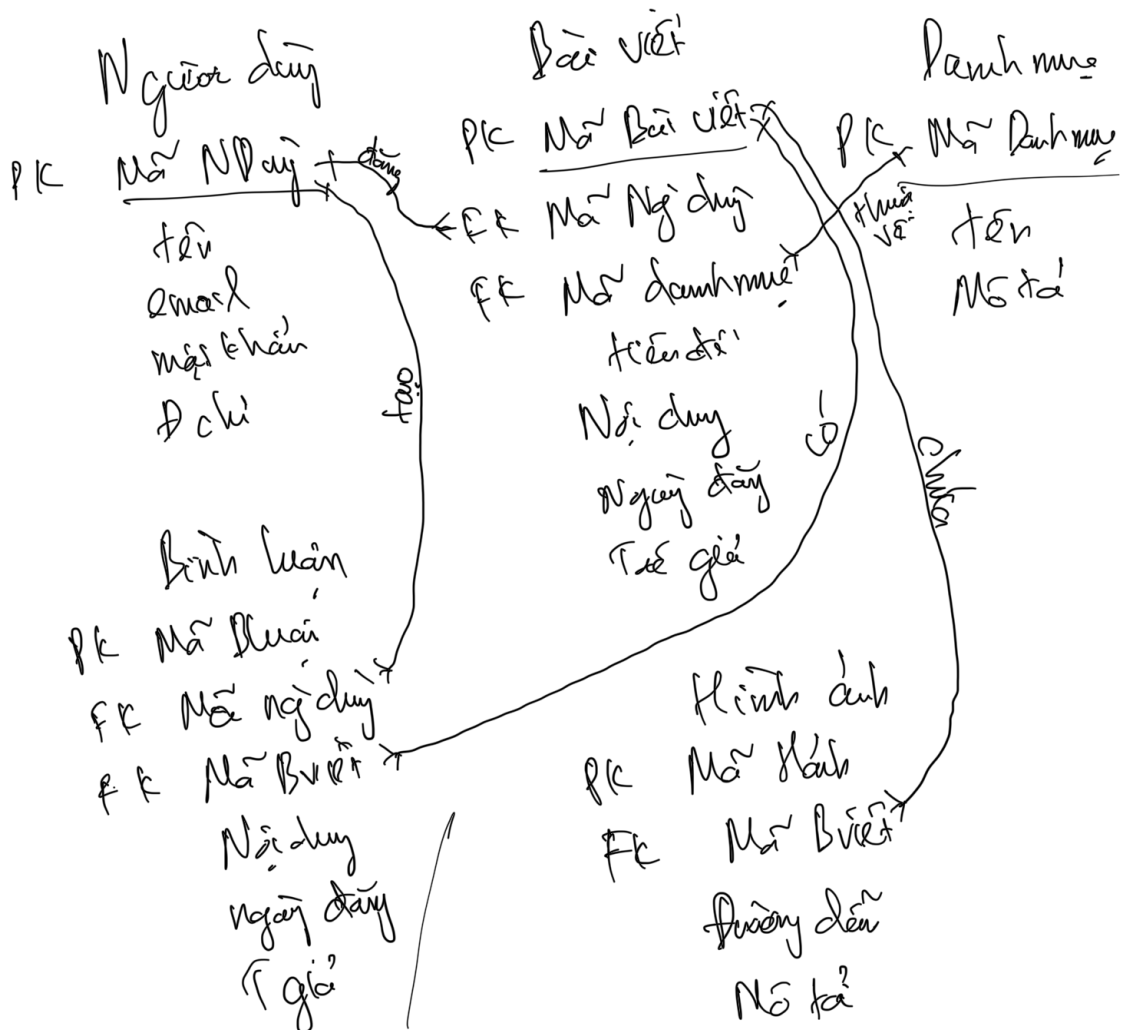 Người dùng
PK Mã NDùg
tên
email
mật khẩu
Đ chỉ
đăng
tạo
Bài viết
PK Mã Bài viết
FK Mã Ng dùg
FK Mã danh mục
tiêu đề
Nội dug
Ngày đăg
Tác giả
thuộc về
Danh mục
PK Mã Danh mục
tên
Mô tả
có
chứa
Bình luận
PK Mã Bluận
FK Mã ng dùg
FK Mã Bviết
Nội dug
ngày đăg
T giả
Hình ảnh
PK Mã Hảnh
FK Mã Bviết
Đường dẫn
Mô tả